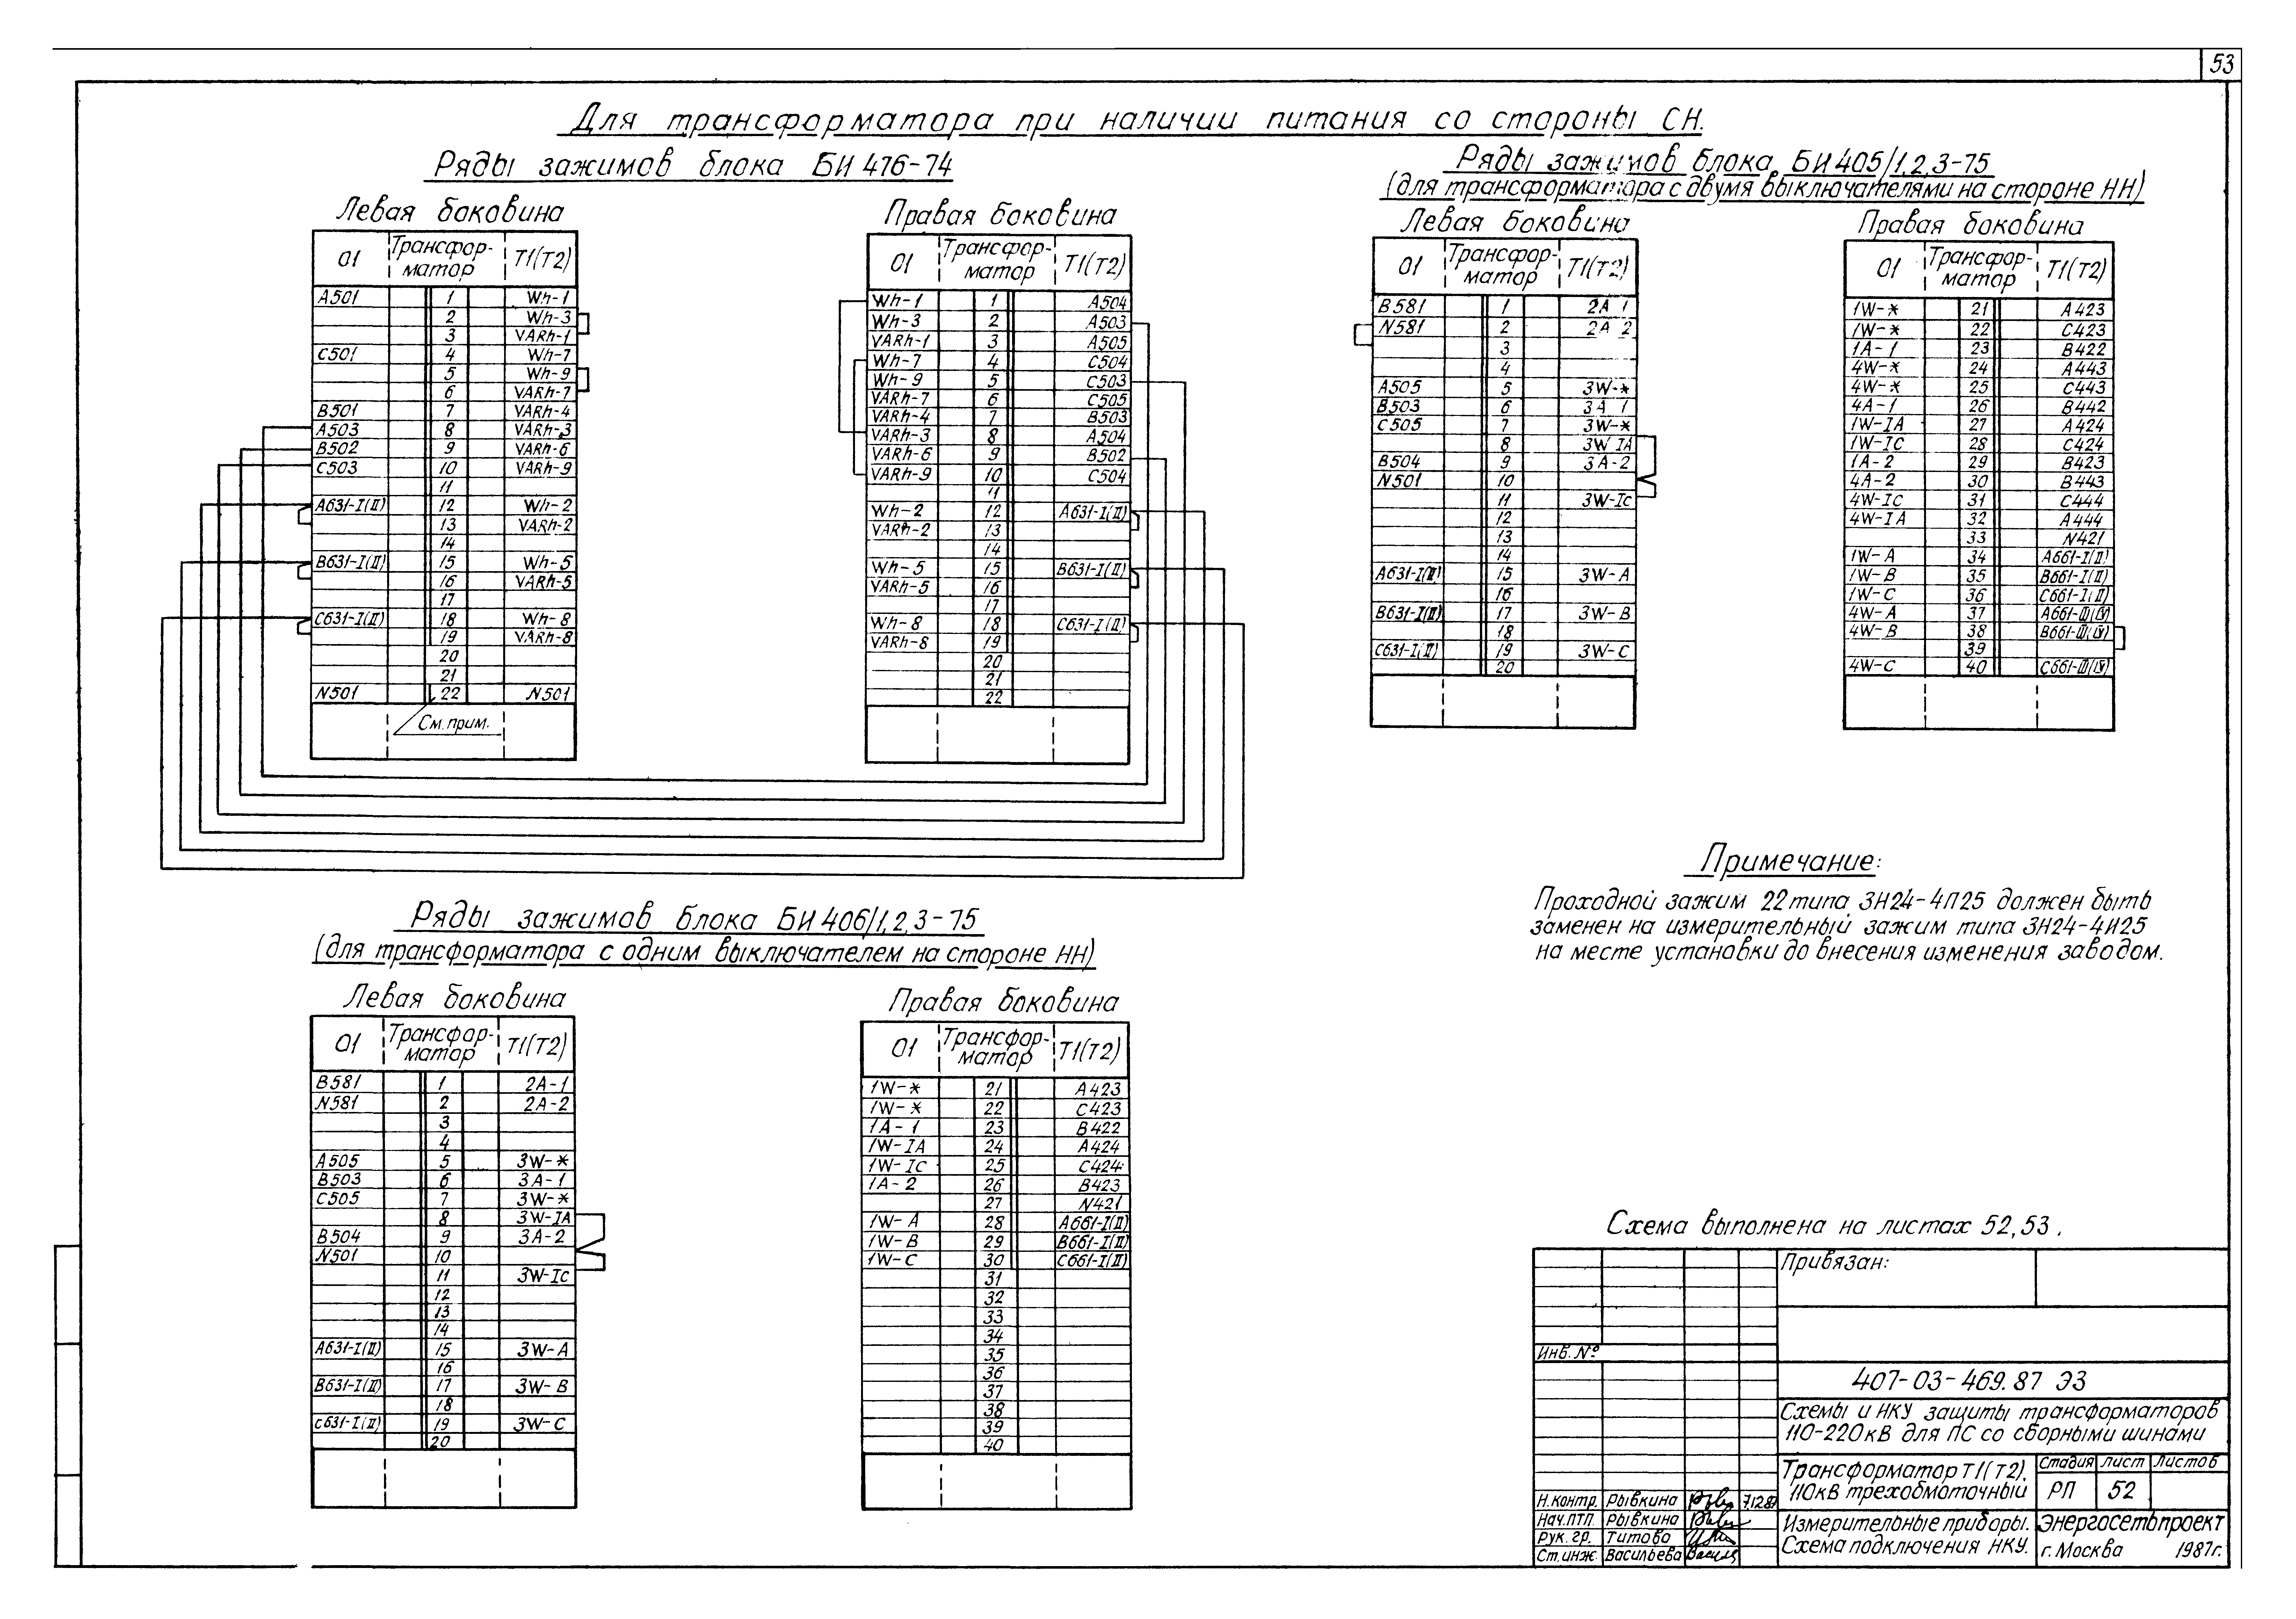 53
Для трансформатора при наличии питания со стороны СН.
Ряды зажимов блока БИ 476-74
Левая боковина
01 Трансфор-матор Т1(Т2)
А501 1 Wh-1
2 Wh-3
3 VARh-1
С501 4 Wh-7
5 Wh-9
6 VARh-7
В501 7 VARh-4
А503 8 VARh-3
В502 9 VARh-6
С503 10 VARh-9
11
А631-I(II) 12 Wh-2
13 VARh-2
14
В631-I(II) 15 Wh-5
16 VARh-5
17
С631-I(II) 18 Wh-8
19 VARh-8
20
21
N501 22 N501
См. прим.
Правая боковина
01 Трансфор-матор Т1(Т2)
Wh-1 1 А504
Wh-3 2 А503
VARh-1 3 А505
Wh-7 4 С504
Wh-9 5 С503
VARh-7 6 С505
VARh-4 7 В503
VARh-3 8 А504
VARh-6 9 В502
VARh-9 10 С504
11
Wh-2 12 А631-I(II)
VARh-2 13
14
Wh-5 15 В631-I(II)
VARh-5 16
17
Wh-8 18 С631-I(II)
VARh-8 19
20
21
22
Ряды зажимов блока БИ 405/1,2,3-75
(для трансформатора с двумя выключателями на стороне НН)
Левая боковина
01 Трансфор-матор Т1(Т2)
В581 1 2А 1
N581 2 2А 2
3
4
А505 5 3W-*
В503 6 3А 1
С505 7 3W-*
8 3W IA
В504 9 3А-2
N501 10
11 3W-Ic
12
13
14
А631-I(II) 15 3W-А
16
В631-I(II) 17 3W-В
18
С631-I(II) 19 3W-С
20
Правая боковина
01 Трансфор-матор Т1(Т2)
1W-* 21 А423
1W-* 22 С423
1А-1 23 В422
4W-* 24 А443
4W-* 25 С443
4А-1 26 В442
1W-IA 27 А424
1W-IC 28 С424
1А-2 29 В423
4А-2 30 В443
4W-IC 31 С444
4W-IA 32 А444
33 N421
1W-А 34 А661-I(II)
1W-В 35 В661-I(II)
1W-С 36 С661-I(II)
4W-А 37 А661-III(IV)
4W-В 38 В661-III(IV)
39
4W-С 40 С661-III(IV)
Примечание:
Проходной зажим 22 типа ЗН24-4П25 должен быть
заменен на измерительный зажим типа ЗН24-4И25
на месте установки до внесения изменения заводом.
Ряды зажимов блока БИ 406/1,2,3-75
(для трансформатора с одним выключателем на стороне НН)
Левая боковина
01 Трансфор-матор Т1(Т2)
В581 1 2А-1
N581 2 2А-2
3
4
А505 5 3W-*
В503 6 3А-1
С505 7 3W-*
8 3W-IA
В504 9 3А-2
N501 10
11 3W-Ic
12
13
14
А631-I(II) 15 3W-А
16
В631-I(II) 17 3W-В
18
С631-I(II) 19 3W-С
20
Правая боковина
01 Трансфор-матор Т1(Т2)
1W-* 21 А423
1W-* 22 С423
1А-1 23 В422
1W-IA 24 А424
1W-IC 25 С424
1А-2 26 В423
27 N421
1W-А 28 А661-I(II)
1W-В 29 В661-I(II)
1W-С 30 С661-I(II)
31
32
33
34
35
36
37
38
39
40
Схема выполнена на листах 52,53.
Привязан:
Инв. №
407-03-469.87 ЭЗ
Схемы и НКУ защиты трансформаторов
110-220кВ для ПС со сборными шинами
Трансформатор Т1(Т2),
110кВ трехобмоточный
Стадия Лист Листов
РП 52
Н.контр. Рывкина 7.12.87
Нач.ПТП. Рывкина
Рук. гр. Титова
Ст.инж. Васильева
Измерительные приборы.
Схема подключения НКУ.
Энергосетьпроект
г. Москва 1987г.